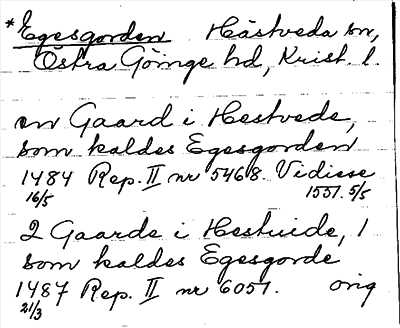 *Egesgorden Hästveda sn,
Östra Göinge hd, Krist. l.
en Gaard i Hestvede,
som kaldes Egesgorden
1484 Rep. II nr 5468. Vidisse
16/5 1551. 5/5
2 Gaarde i Hestuide, 1
som kaldes Egesgorde
1487 Rep. II nr 6051. orig
21/3